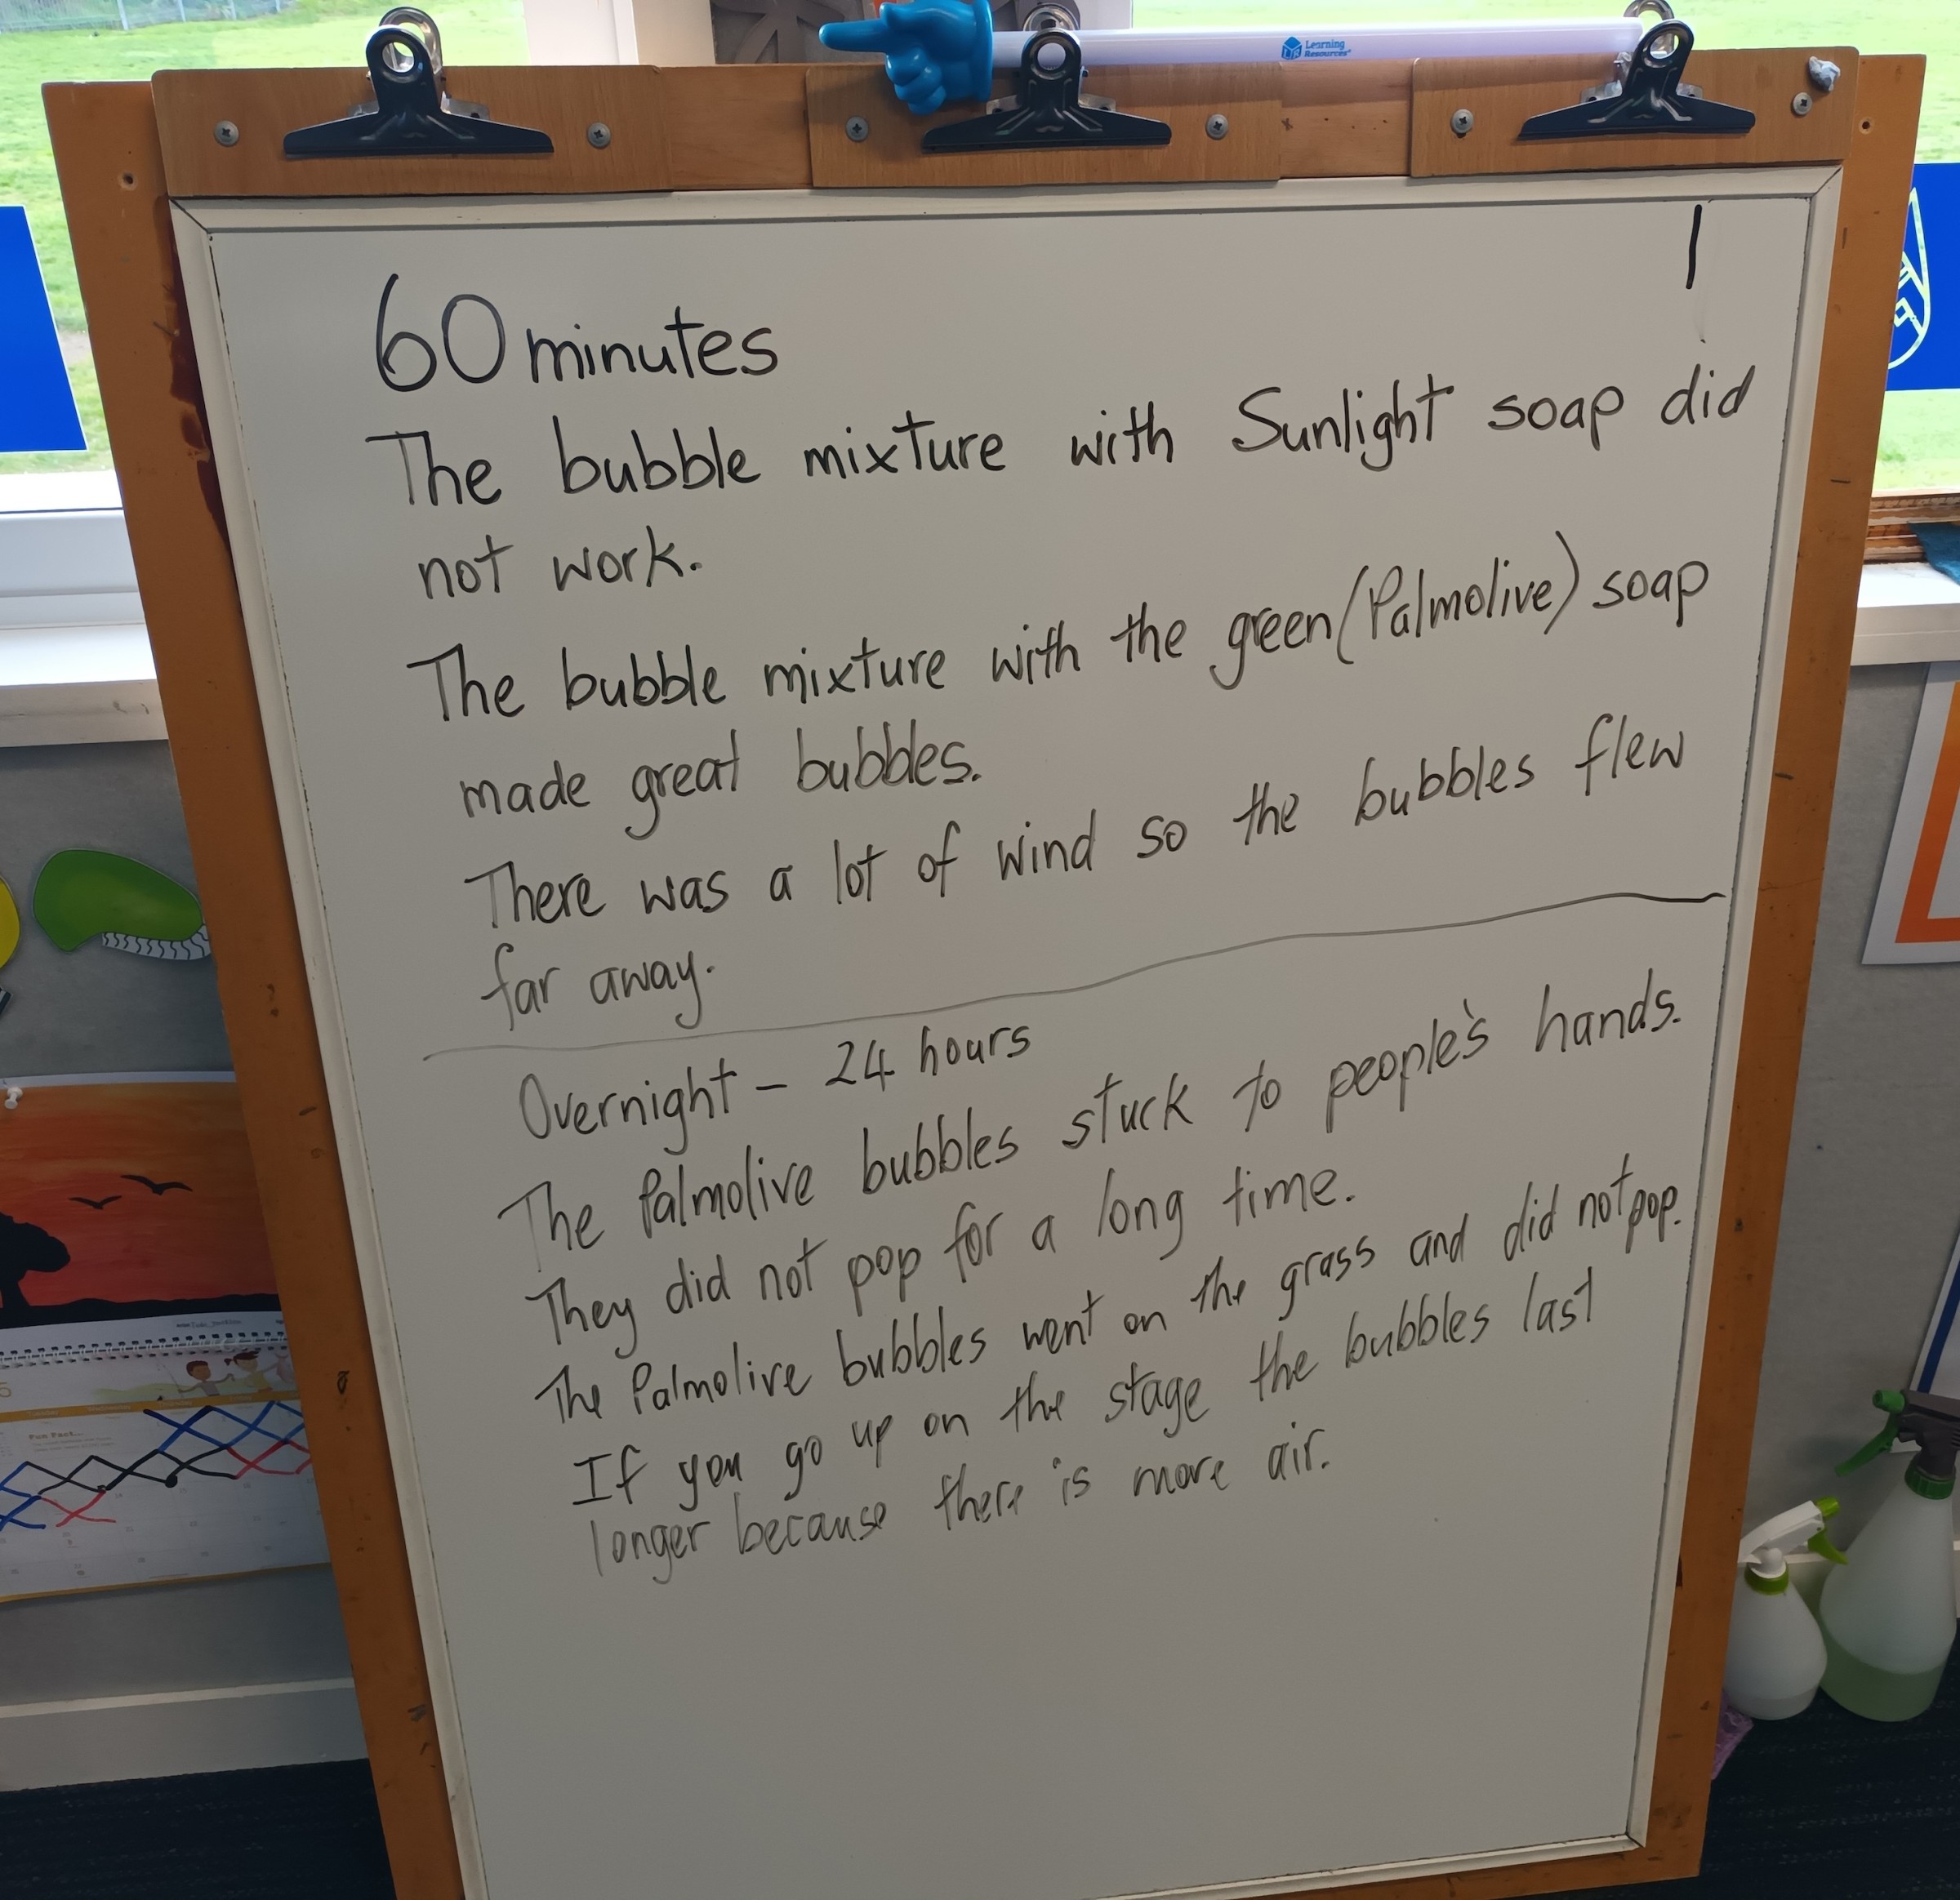 Learning
Resources
60 minutes
The bubble mixture with Sunlight soap did
not work.
The bubble mixture with the green (Palmolive) soap
made great bubbles.
There was a lot of wind so the bubbles flew
far away.
Overnight - 24 hours
The Palmolive bubbles stuck to people's hands.
They did not pop for a long time.
The Palmolive bubbles went on the grass and did not pop.
If you go up on the stage the bubbles last
longer because there is more air.
Fun Fact...